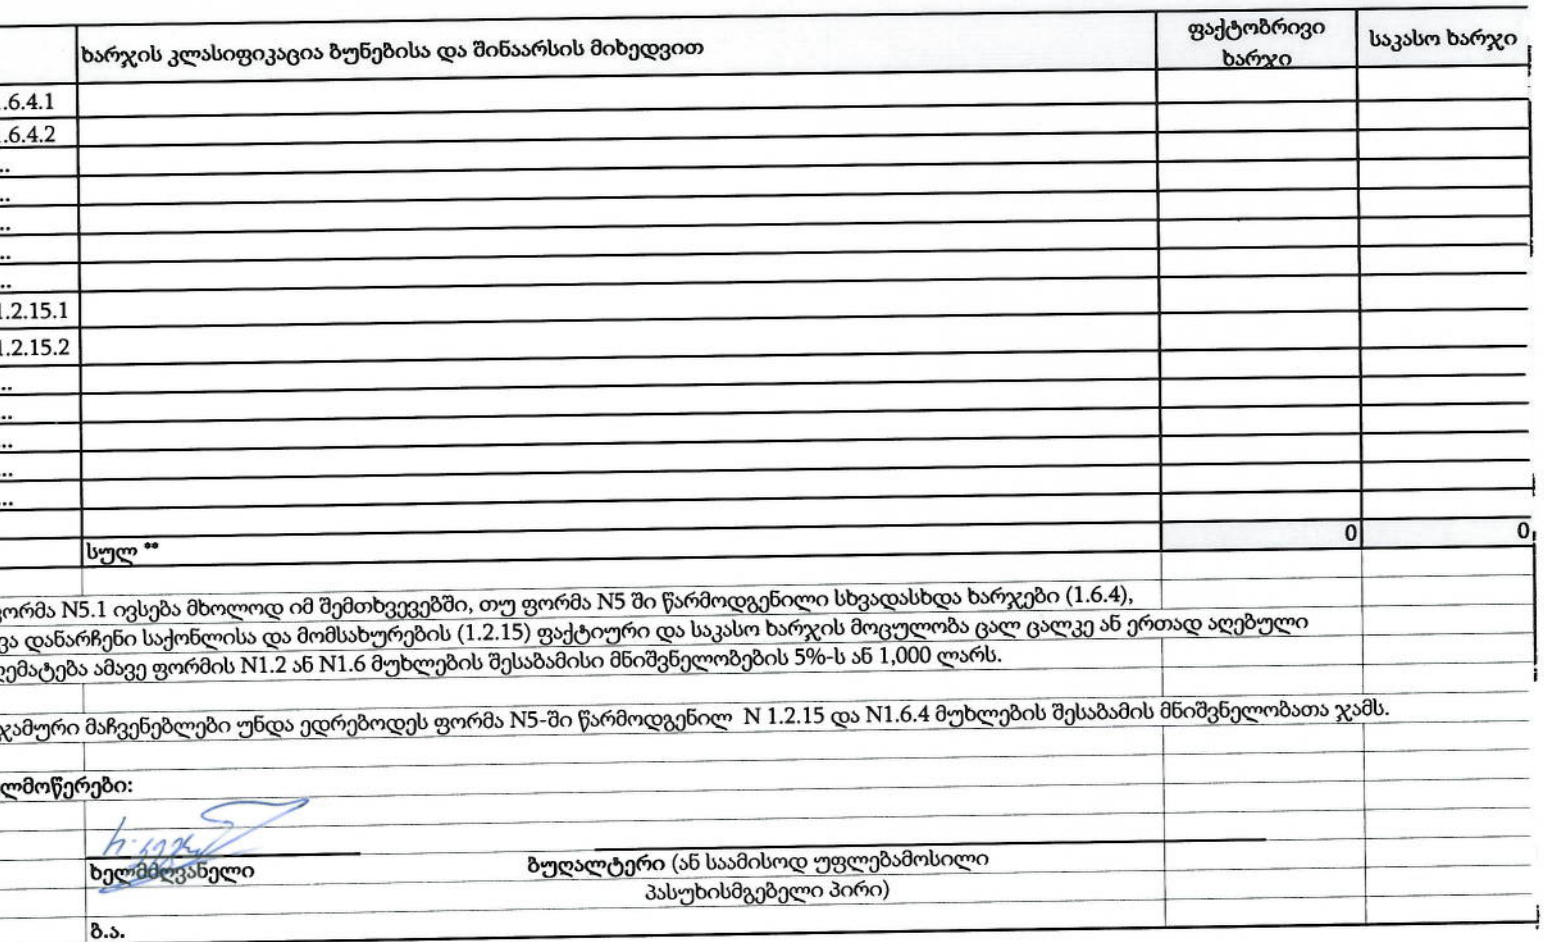 ხარჯის კლასიფიკაცია ბუნებისა და შინაარსის მიხედვით ფაქტობრივი ხარჯი საკასო ხარჯი
.6.4.1
.6.4.2
..
..
..
..
..
1.2.15.1
1.2.15.2
..
..
..
..
..
სულ ** 0 0
ორმა N5.1 ივსება მხოლოდ იმ შემთხვევებში, თუ ფორმა N5 ში წარმოდგენილი სხვადასხდა ხარჯები (1.6.4),
ვა დანარჩენი საქონლისა და მომსახურების (1.2.15) ფაქტიური და საკასო ხარჯის მოცულობა ცალ ცალკე ან ერთად აღებული
ღემატება ამავე ფორმის N1.2 ან N1.6 მუხლების შესაბამისი მნიშვნელობების 5%-ს ან 1,000 ლარს.
ჯამური მაჩვენებლები უნდა ედრებოდეს ფორმა N5-ში წარმოდგენილ N 1.2.15 და N1.6.4 მუხლების შესაბამის მნიშვნელობათა ჯამს.
ლმოწერები:
ხელმძღვანელი ბუღალტერი (ან საამისოდ უფლებამოსილი
პასუხისმგებელი პირი)
ბ.ა.